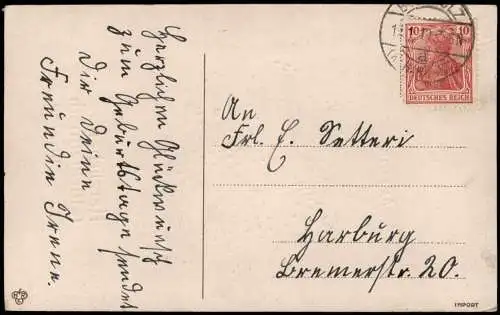 Herzlichen Glückwunsch
zum Geburtstage sendet
Dir deine
Freundin Irene.
An
Frl. E. Setteri
Harburg
Bremerstr. 20.
10 10
DEUTSCHES REICH
IMPORT